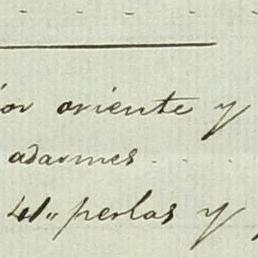 ior oriente y
adarmes
41" perlas y